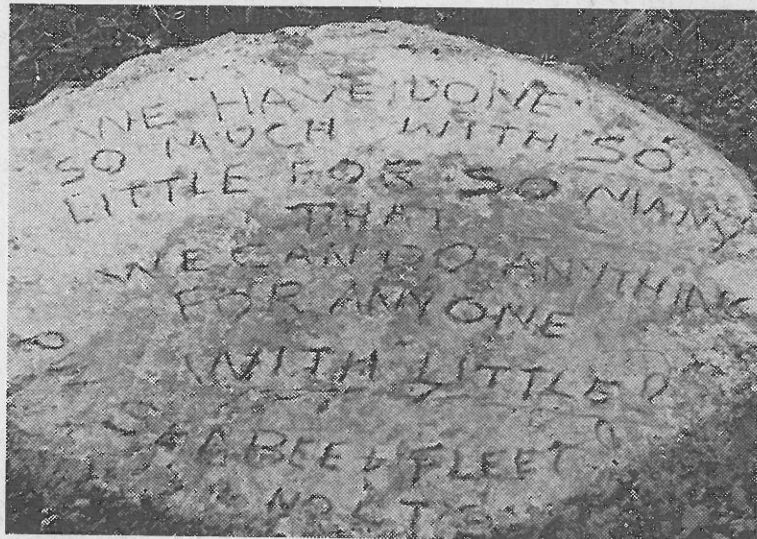 WE HAVE DONE
SO MUCH WITH SO
LITTLE FOR SO MANY
THAT
WE CAN DO ANYTHING
FOR ANYONE
WITH LITTLE
SEABEE & FLEET